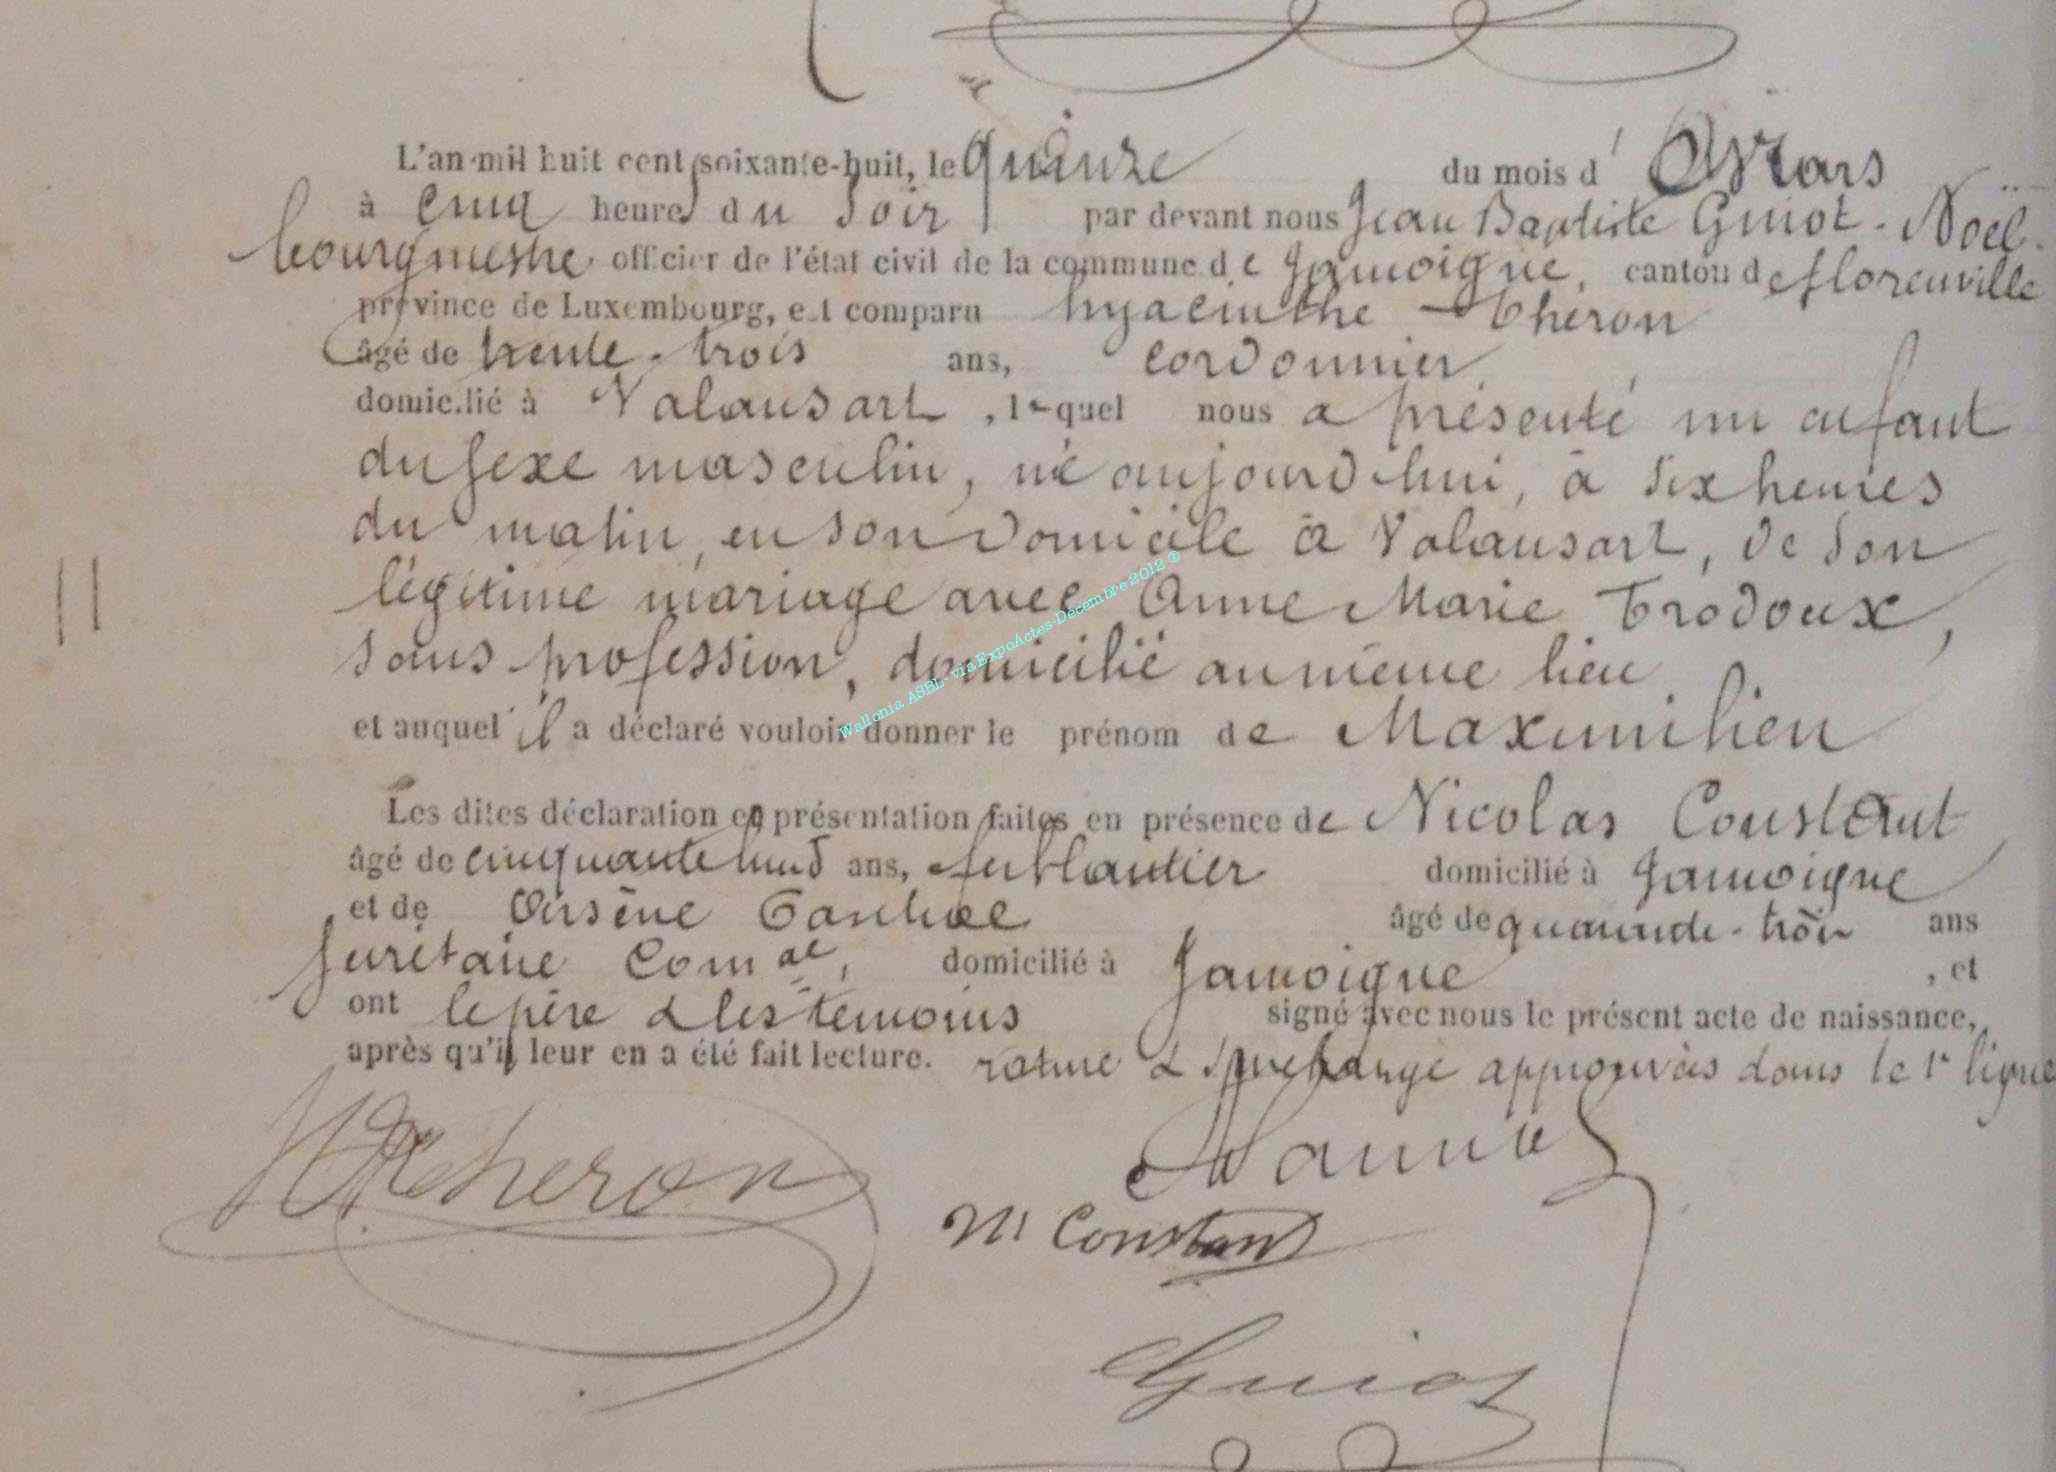 L'an mil huit cent soixante-huit, le quinze du mois d' Mars
à cinq heures du soir par devant nous Jean Baptiste Guiot-Noël
bourgmestre officier de l'état civil de la commune de Jamoigne, canton de florenville
province de Luxembourg, est comparu hyacinthe Theron
âgé de trente-trois ans, cordonnier
domicilié à Valansart, lequel nous a présenté un enfant
du sexe masculin, né aujourd'hui, à six heures
du matin, en son domicile à Valansart, de son
légitime mariage avec Anne Marie Trodoux,
sans profession, domicilié au même lieu
et auquel il a déclaré vouloir donner le prénom de Maximilien
Les dites déclaration et présentation faites en présence de Nicolas Constant
âgé de cinquante huit ans, ferblantier domicilié à Jamoigne
et de Arsène âgé de quarante-trois ans
secrétaire Comal, domicilié à Jamoigne, et
ont le père & les témoins signé avec nous le présent acte de naissance,
après qu'il leur en a été fait lecture. rature & surcharge approuvés dans la 1e ligne
H Theron
N Constant
Guiot
Wallonia ASBL - via ExpoActes-Décembre 2012 ®